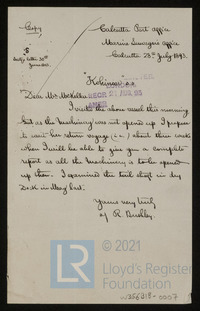 Copy
Calcutta Port Office
Marine Surveyors Office
Calcutta 28th July 1893
"Kohinur" s.s.
Dear Mr. McKellar
I visited the above vessel this morning
but as the Machinery was not opened up I propose
to wait her return voyage (i.e.) about three weeks
when I will be able to give you a complete
report as all the Machinery is to be opened
up then. I examined the tail shaft in dry
Dock in May last.
Yours very truly
R. Buckley
© 2021
LR
Lloyd's Register
Foundation
-0007